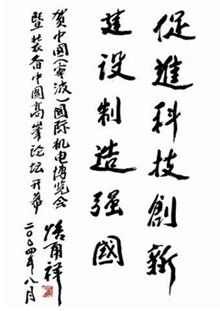 促進科技創新
建設制造强國
贺中国（寧波）国际机电博览会
暨装备中国高峯论坛开幕
路甬祥
二〇〇四年八月